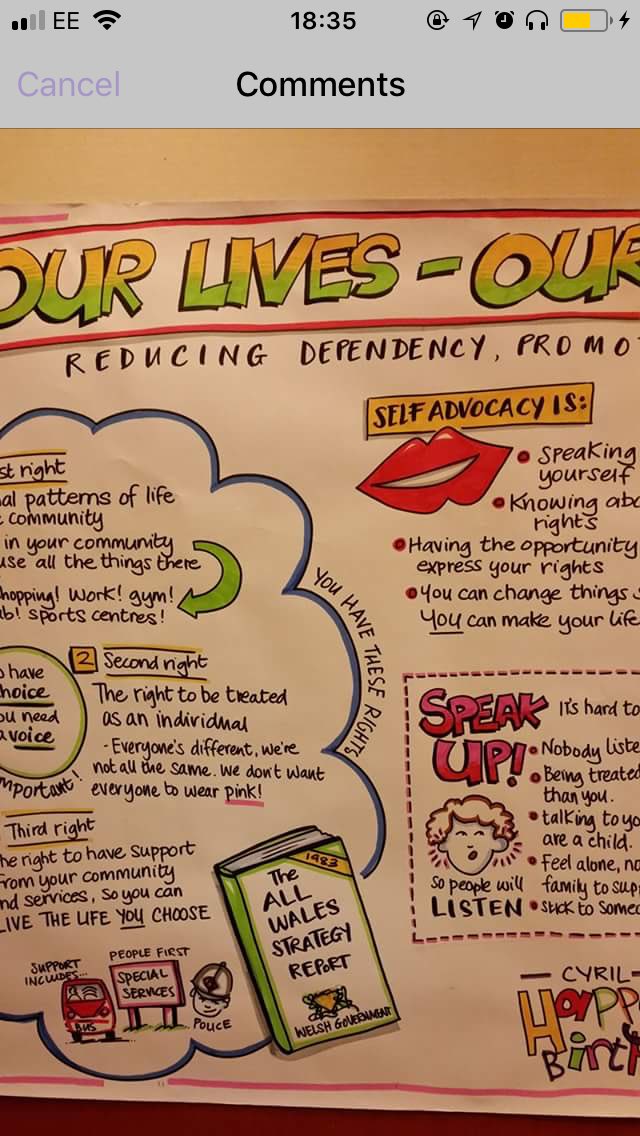 EE
18:35
Cancel
Comments
OUR LIVES - OUR
REDUCING DEPENDENCY, PROMO
st right
al patterns of life
community
in your community
use all the things there
hopping! Work! gym!
b! sports centres!
YOU HAVE THESE RIGHTS
have
hoice
ou need
a voice
mportant!
2 Second right
The right to be treated
as an individual
- Everyone's different, we're
not all the same. We don't want
everyone to wear pink!
Third right
he right to have support
from your community
nd services, so you can
LIVE THE LIFE YOU CHOOSE
SUPPORT
INCLUDES...
BUS
PEOPLE FIRST
SPECIAL
SERVICES
POLICE
1983
The
ALL
WALES
STRATEGY
REPORT
WELSH GOVERNMENT
SELF ADVOCACY IS:
• Speaking
yourself
• Knowing abo
rights
• Having the opportunity
express your rights
• You can change things
YOU can make your life
SPEAK
UP!
so people will
LISTEN
It's hard to
• Nobody liste
• Being treated
than you.
• talking to yo
are a child.
• Feel alone, no
family to supp
• stick to someo
— CYRIL —
Happ
Birth